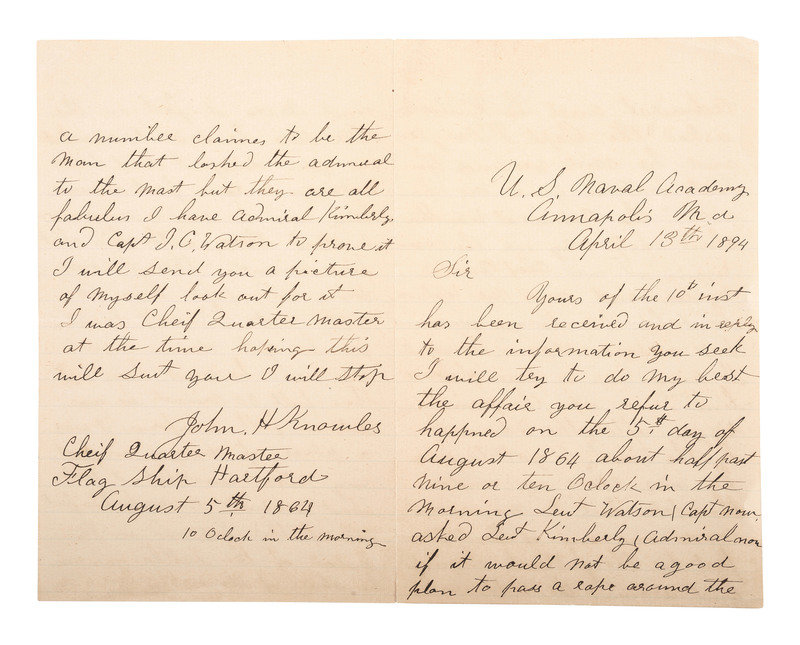 U. S. Naval Academy
Annapolis Md
April 13th 1894
Sir
Yours of the 10th inst
has been received and in reply
to the information you seek
I will try to do my best
the affair you refur to
happned on the 5th day of
August 1864 about half past
nine or ten Oclock in the
Morning Leut Watson (Capt now
asked Leut Kimberly (Admiral now
if it would not be a good
plan to pass a rope around the
a number claimes to be the
man that lashed the admiral
to the mast but they are all
fabulus I have Admiral Kimberly
and Capt J. C. Watson to prove it
I will send you a picture
of myself look out for it
I was Cheif Quarter Master
at the time hoping this
will suit your I will stop
John. H Knowles
Cheif Quarter Master
Flag Ship Hartford
August 5th 1864
10 Oclock in the morning